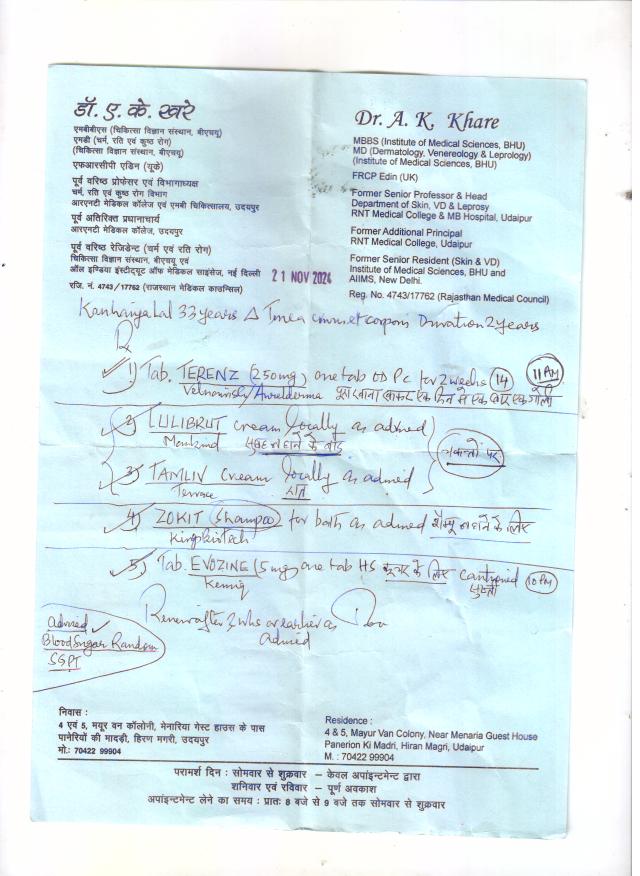 डॉ. ए. के. खरे
एमबीबीएस (चिकित्सा विज्ञान संस्थान, बीएचयू)
एमडी (चर्म, रति एवं कुष्ठ रोग)
(चिकित्सा विज्ञान संस्थान, बीएचयू)
एफआरसीपी एडिन (यूके)
पूर्व वरिष्ठ प्रोफेसर एवं विभागाध्यक्ष
चर्म, रति एवं कुष्ठ रोग विभाग
आरएनटी मेडिकल कॉलेज एवं एमबी चिकित्सालय, उदयपुर
पूर्व अतिरिक्त प्रधानाचार्य
आरएनटी मेडिकल कॉलेज, उदयपुर
पूर्व वरिष्ठ रेजिडेन्ट (चर्म एवं रति रोग)
चिकित्सा विज्ञान संस्थान, बीएचयू एवं
ऑल इण्डिया इंस्टीट्यूट ऑफ मेडिकल साइंसेज, नई दिल्ली
रजि. नं. 4743/17762 (राजस्थान मेडिकल काउन्सिल)
Dr. A. K. Khare
MBBS (Institute of Medical Sciences, BHU)
MD (Dermatology, Venereology & Leprology)
(Institute of Medical Sciences, BHU)
FRCP Edin (UK)
Former Senior Professor & Head
Department of Skin, VD & Leprosy
RNT Medical College & MB Hospital, Udaipur
Former Additional Principal
RNT Medical College, Udaipur
Former Senior Resident (Skin & VD)
Institute of Medical Sciences, BHU and
AIIMS, New Delhi.
Reg. No. 4743/17762 (Rajasthan Medical Council)
21 NOV 2024
Kanhaiyalal 33 years Δ Tinea cruris et corporis Duration 2 years
1) Tab. TERENZ (250mg) one tab OD PC for 2 weeks (14) 11 AM
2) LULIBRUT cream locally as advised
Mankind सुबह नहाने के बाद
3) TAMLIV cream locally as advised
रात
4) ZOKIT (Shampoo) for bath as advised शैम्पू नहाने के लिए
5) Tab. EVOZINE (5mg) one tab HS के लिए 10 PM
Renew after 2 wks or earlier as
advised
Advised
Blood Sugar Random
SGPT
निवास :
4 एवं 5, मयूर वन कॉलोनी, मेनारिया गेस्ट हाउस के पास
पानेरियों की मादड़ी, हिरण मगरी, उदयपुर
मो.: 70422 99904
Residence :
4 & 5, Mayur Van Colony, Near Menaria Guest House
Panerion Ki Madri, Hiran Magri, Udaipur
M. : 70422 99904
परामर्श दिन : सोमवार से शुक्रवार – केवल अपांइन्टमेन्ट द्वारा
शनिवार एवं रविवार – पूर्ण अवकाश
अपांइन्टमेन्ट लेने का समय : प्रातः 8 बजे से 9 बजे तक सोमवार से शुक्रवार